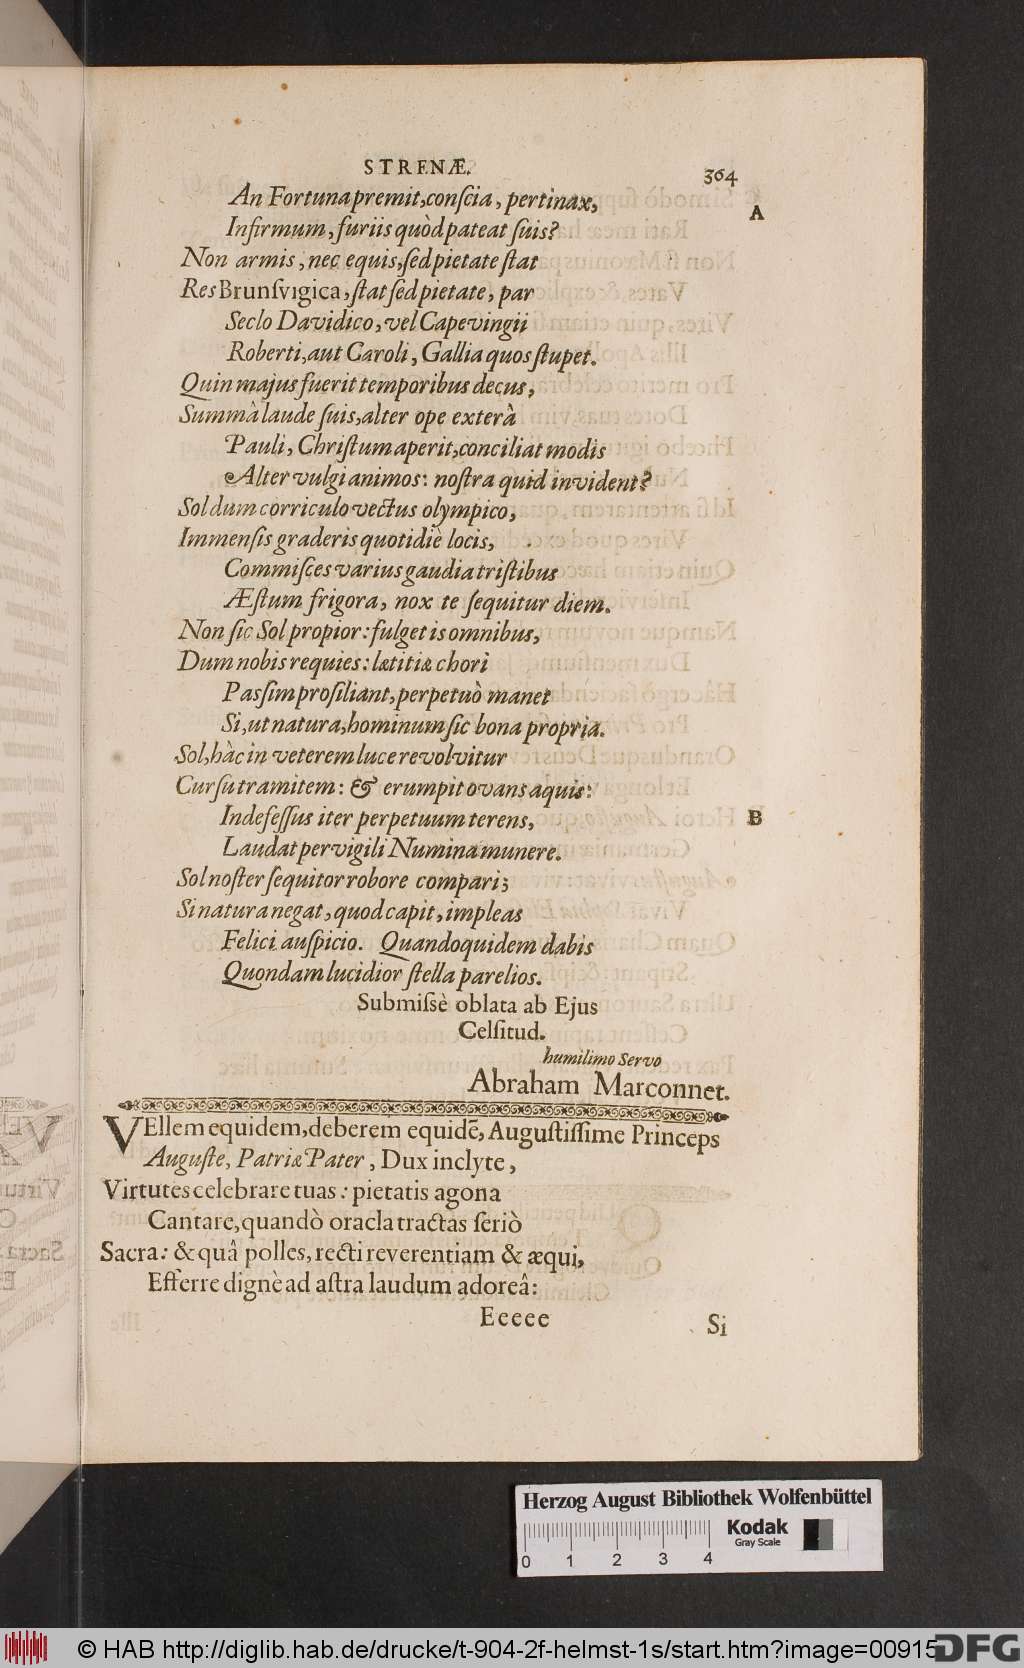 STRENÆ.
364
An Fortuna premit, conſcia, pertinax,
A
Infirmum, furiis quòd pateat ſuis?
Non armis, nec equis, ſed pietate ſtat
Res Brunſvigica, ſtat ſed pietate, par
Seclo Davidico, vel Capevingii
Roberti, aut Caroli, Gallia quos ſtupet.
Quin majus fuerit temporibus decus,
Summâ laude ſuis, alter ope exterà
Pauli, Chriſtum aperit, conciliat modis
Alter vulgi animos: noſtra quid invident?
Sol dum corriculo vectus olympico,
Immenſis graderis quotidiè locis,
Commiſces varius gaudia triſtibus
Æſtum frigora, nox te ſequitur diem.
Non ſic Sol propior: fulget is omnibus,
Dum nobis requies: lætitiæ chori
Paſſim proſiliant, perpetuò manet
Si, ut natura, hominum ſic bona propria.
Sol, hàc in veterem luce revolvitur
Curſu tramitem: & erumpit ovans aquis:
Indefeſſus iter perpetuum terens,
B
Laudat pervigili Numina munere.
Sol noſter ſequitor robore compari;
Si natura negat, quod capit, impleas
Felici auſpicio. Quandoquidem dabis
Quondam lucidior ſtella parelios.
Submiſsè oblata ab Ejus
Celſitud.
humilimo Servo
Abraham Marconnet.
VEllem equidem, deberem equidē, Auguſtiſſime Princeps
Auguſte, Patriæ Pater, Dux inclyte,
Virtutes celebrare tuas: pietatis agona
Cantare, quandò oracla tractas ſeriò
Sacra: & quâ polles, recti reverentiam & æqui,
Efferre dignè ad aſtra laudum adoreâ:
Eeeee
Si
Herzog August Bibliothek Wolfenbüttel
Kodak
Gray Scale
0 1 2 3 4
© HAB http://diglib.hab.de/drucke/t-904-2f-helmst-1s/start.htm?image=00915
DFG